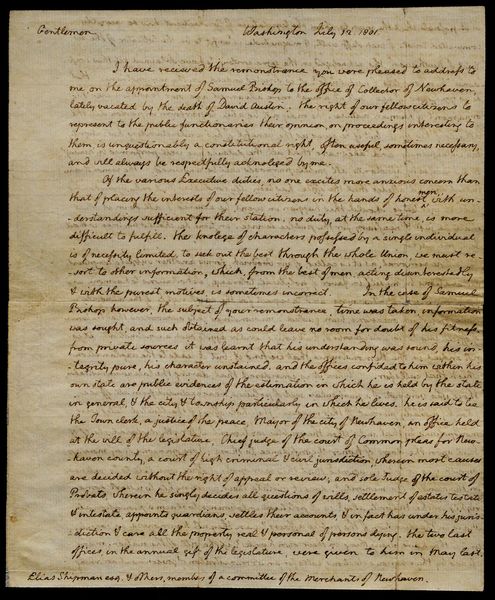 Gentlemen
Washington July 12. 1801.
I have received the remonstrance you were pleased to address to
me, on the appointment of Samuel Bishop to the office of Collector of Newhaven,
lately vacated by the death of David Austin. the right of our fellow citizens to
represent to the public functionaries their opinion, on proceedings interesting to
them is unquestionably a constitutional right, often useful, sometimes necessary,
and will always be respectfully acknoleged by me.
Of the various Executive duties, no one excites more anxious concern than
that of placing the interests of our fellow citizens in the hands of honest men, with un-
-derstandings sufficient for their station. no duty, at the same time, is more
difficult to fulfill. the knolege of characters possessed by a single individual
is of necessity limited. to seek out the best through the whole Union, we must re-
-sort to other information, which, from the best of men, acting disinterestedly
& with the purest motives, is sometimes incorrect. In the case of Samuel
Bishop however, the subject of your remonstrance, time was taken, information
was sought, and such obtained as could leave no room for doubt of his fitness.
from private sources it was learnt that his understanding was sound, his in-
-tegrity pure, his character unstained. and the offices confided to him within his
own state are public evidences of the estimation in which he is held by the state
in general, & the city & township particularly in which he lives. he is said to be
the Town clerk, a justice of the peace, Mayor of the city of Newhaven, an office held
at the will of the legislature, Chief judge of the court of Common pleas for New-
-haven county, a court of high criminal & civil jurisdiction, wherein most causes
are decided without the right of appeal or review, and sole Judge of the court of
Probats, wherein he singly decides all questions of wills, settlement of estates testate
& intestate, appoints guardians, settles their accounts, & in fact has under his juris-
-diction & care all the property real & personal of persons dying. the two last
offices, in the annual gift of the legislature, were given to him in May last.
Elias Shipman esq. & others, members of a committee of the Merchants of Newhaven.